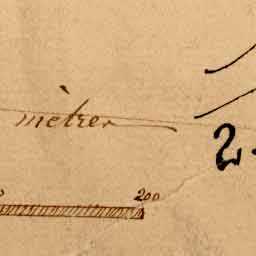 mètres
200
2.